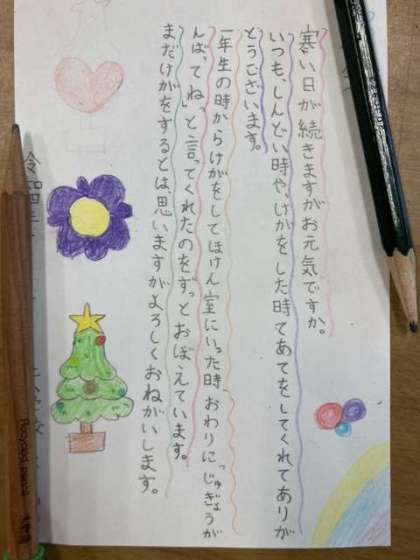 寒い日が続きますがお元気ですか。
いつも、しんどい時や、けがをした時てあてをしてくれてありが
とうございます。
一年生の時からけがをしてほけん室にいった時、おわりに「じゅぎょうが
んば、てね」と言ってくれたのをずっとおぼえています。
まだけがをするとは、思いますがよろしくおねがいします。
Recycled pencil